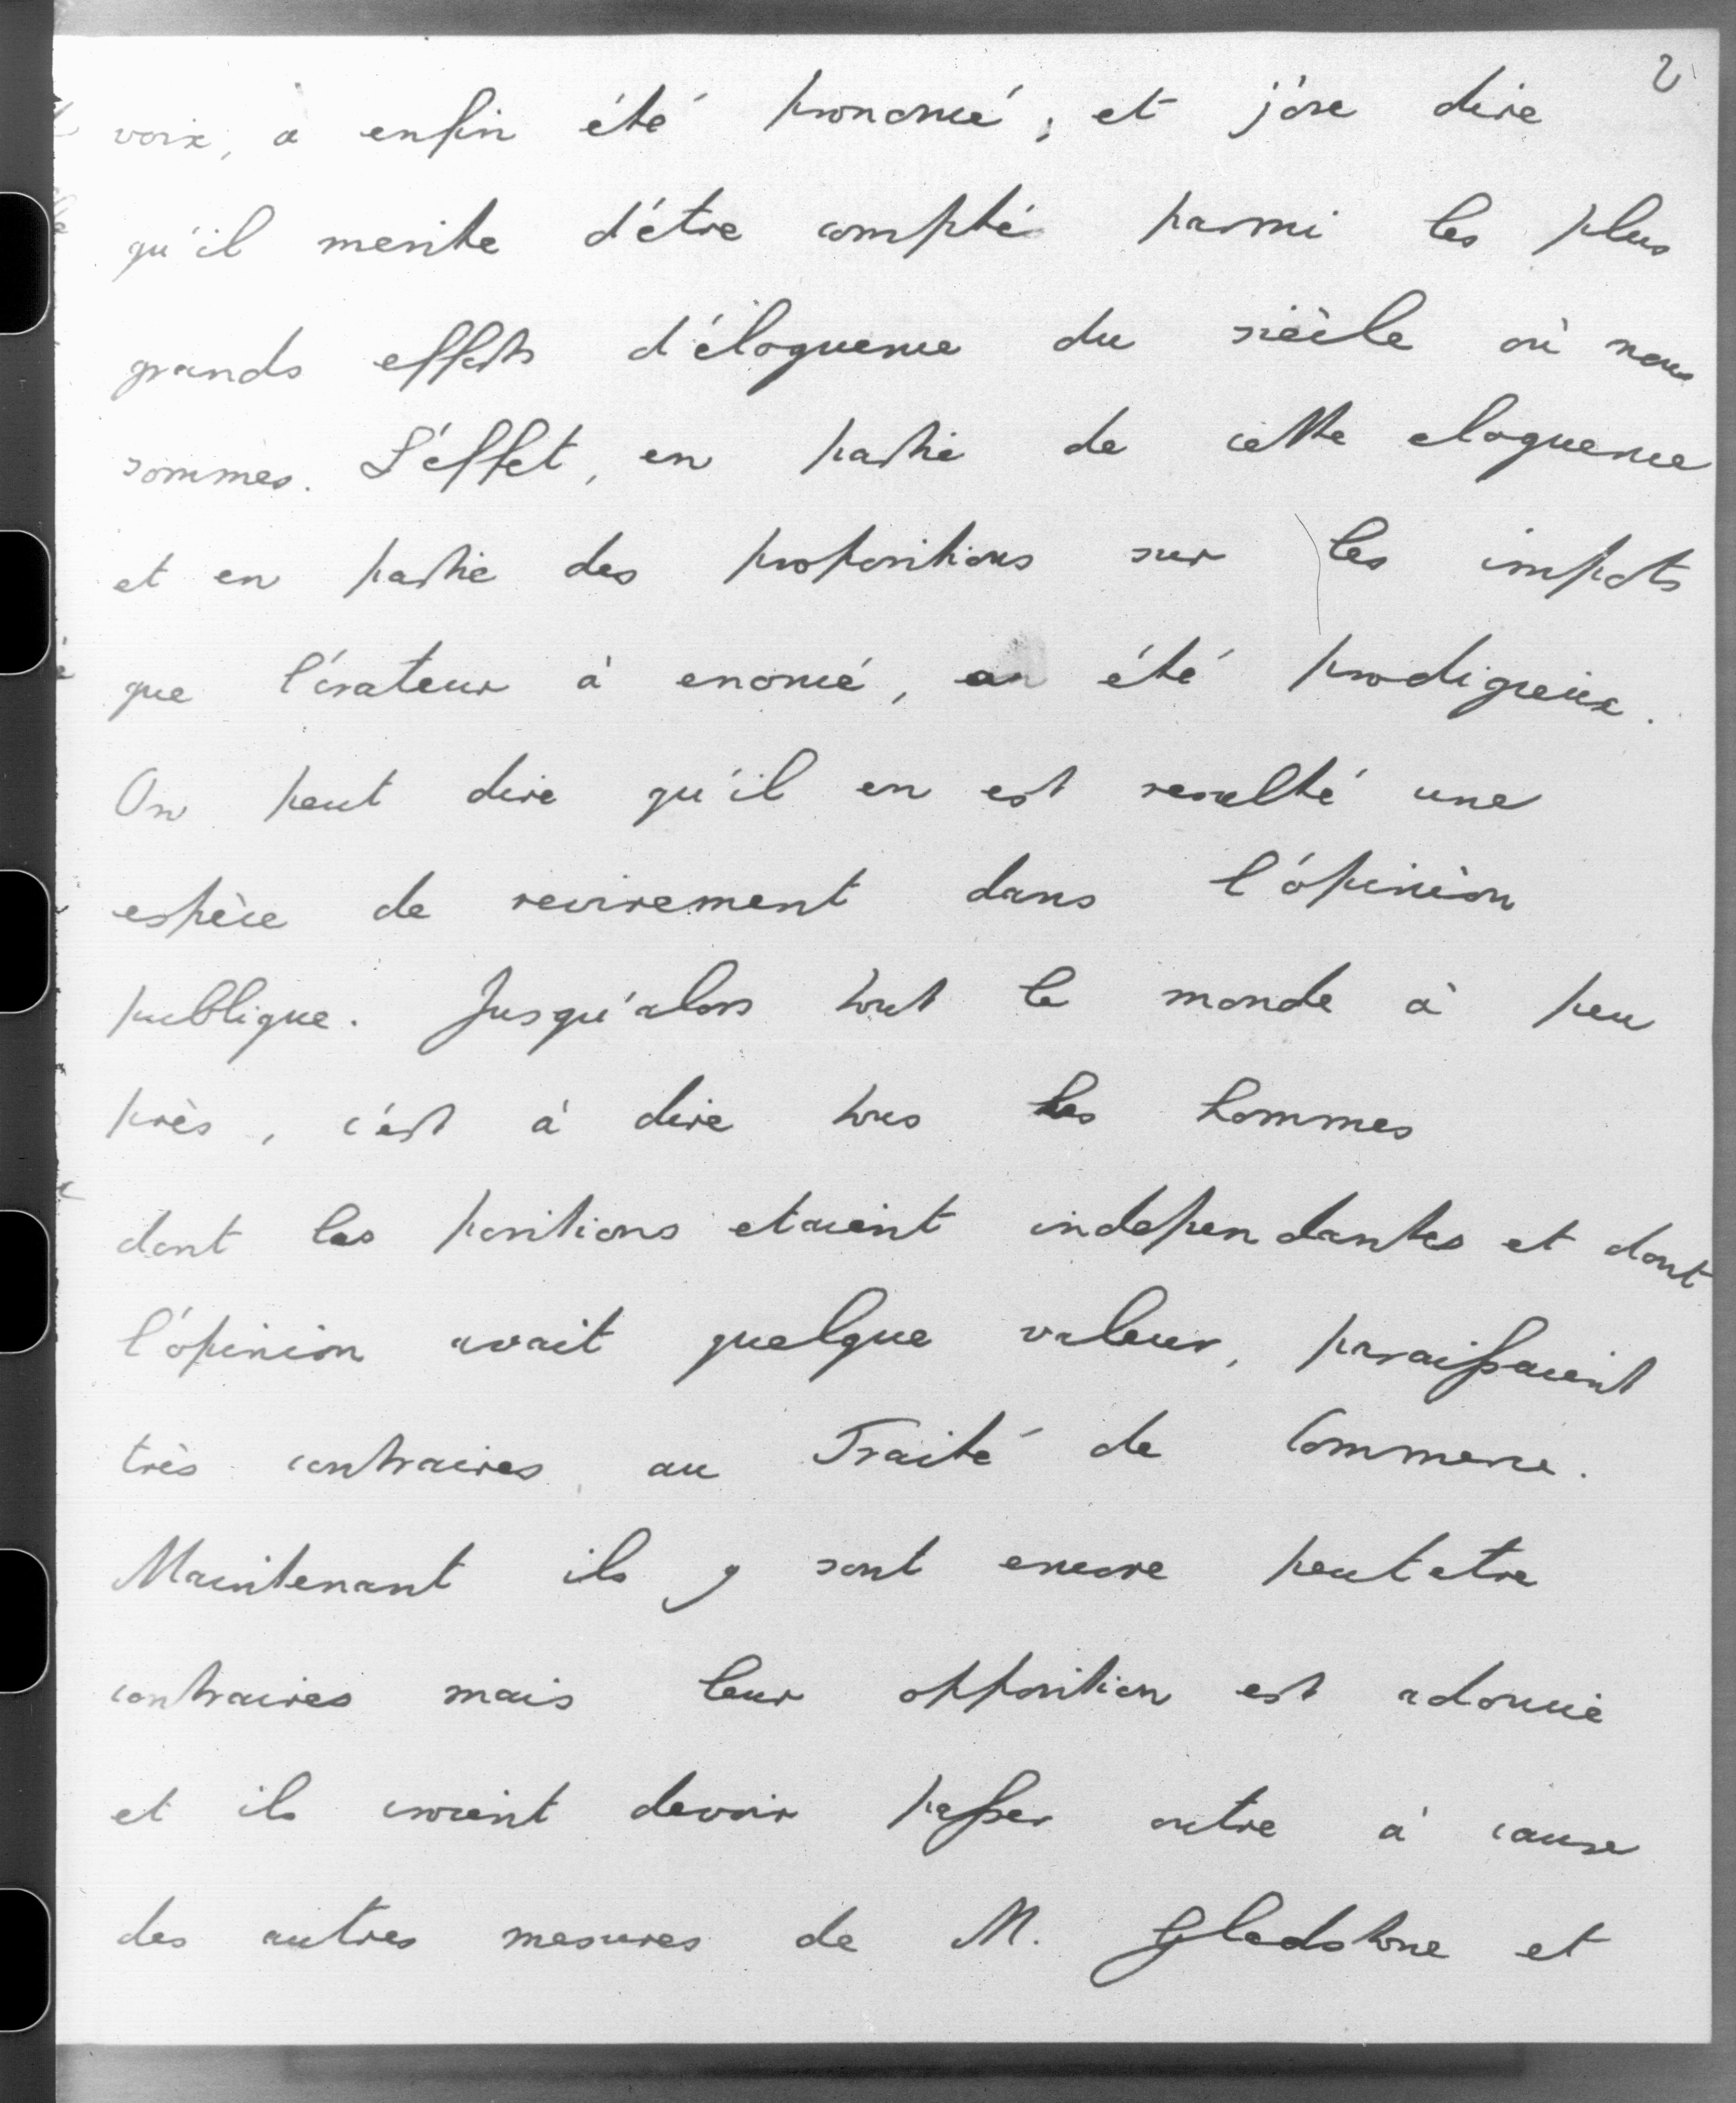 2
voix, a enfin été prononcé; et j'ose dire
qu'il merite d'étre compté parmi les plus
grands effets d'éloquence du siècle où nous
sommes. L'éffet, en partie de cette eloquence
et en partie des propositions sur les impots
que l'órateur à enoncé, a été prodigieux.
On peut dire qu'il en est resulté une
espèce de revirement dans l'ópinion
publique. Jusqu'alors tout le monde à peu
près, c'ést à dire tous les hommes
dont les positions etaient independantes et dont
l'ópinion avait quelque valeur, paraissaient
très contraires au Traité de Commerce.
Maintenant ils y sont encore peut etre
contraires mais leur opposition est adoucie
et ils croient devoir passer outre à cause
des autres mesures de M. Gladstone et